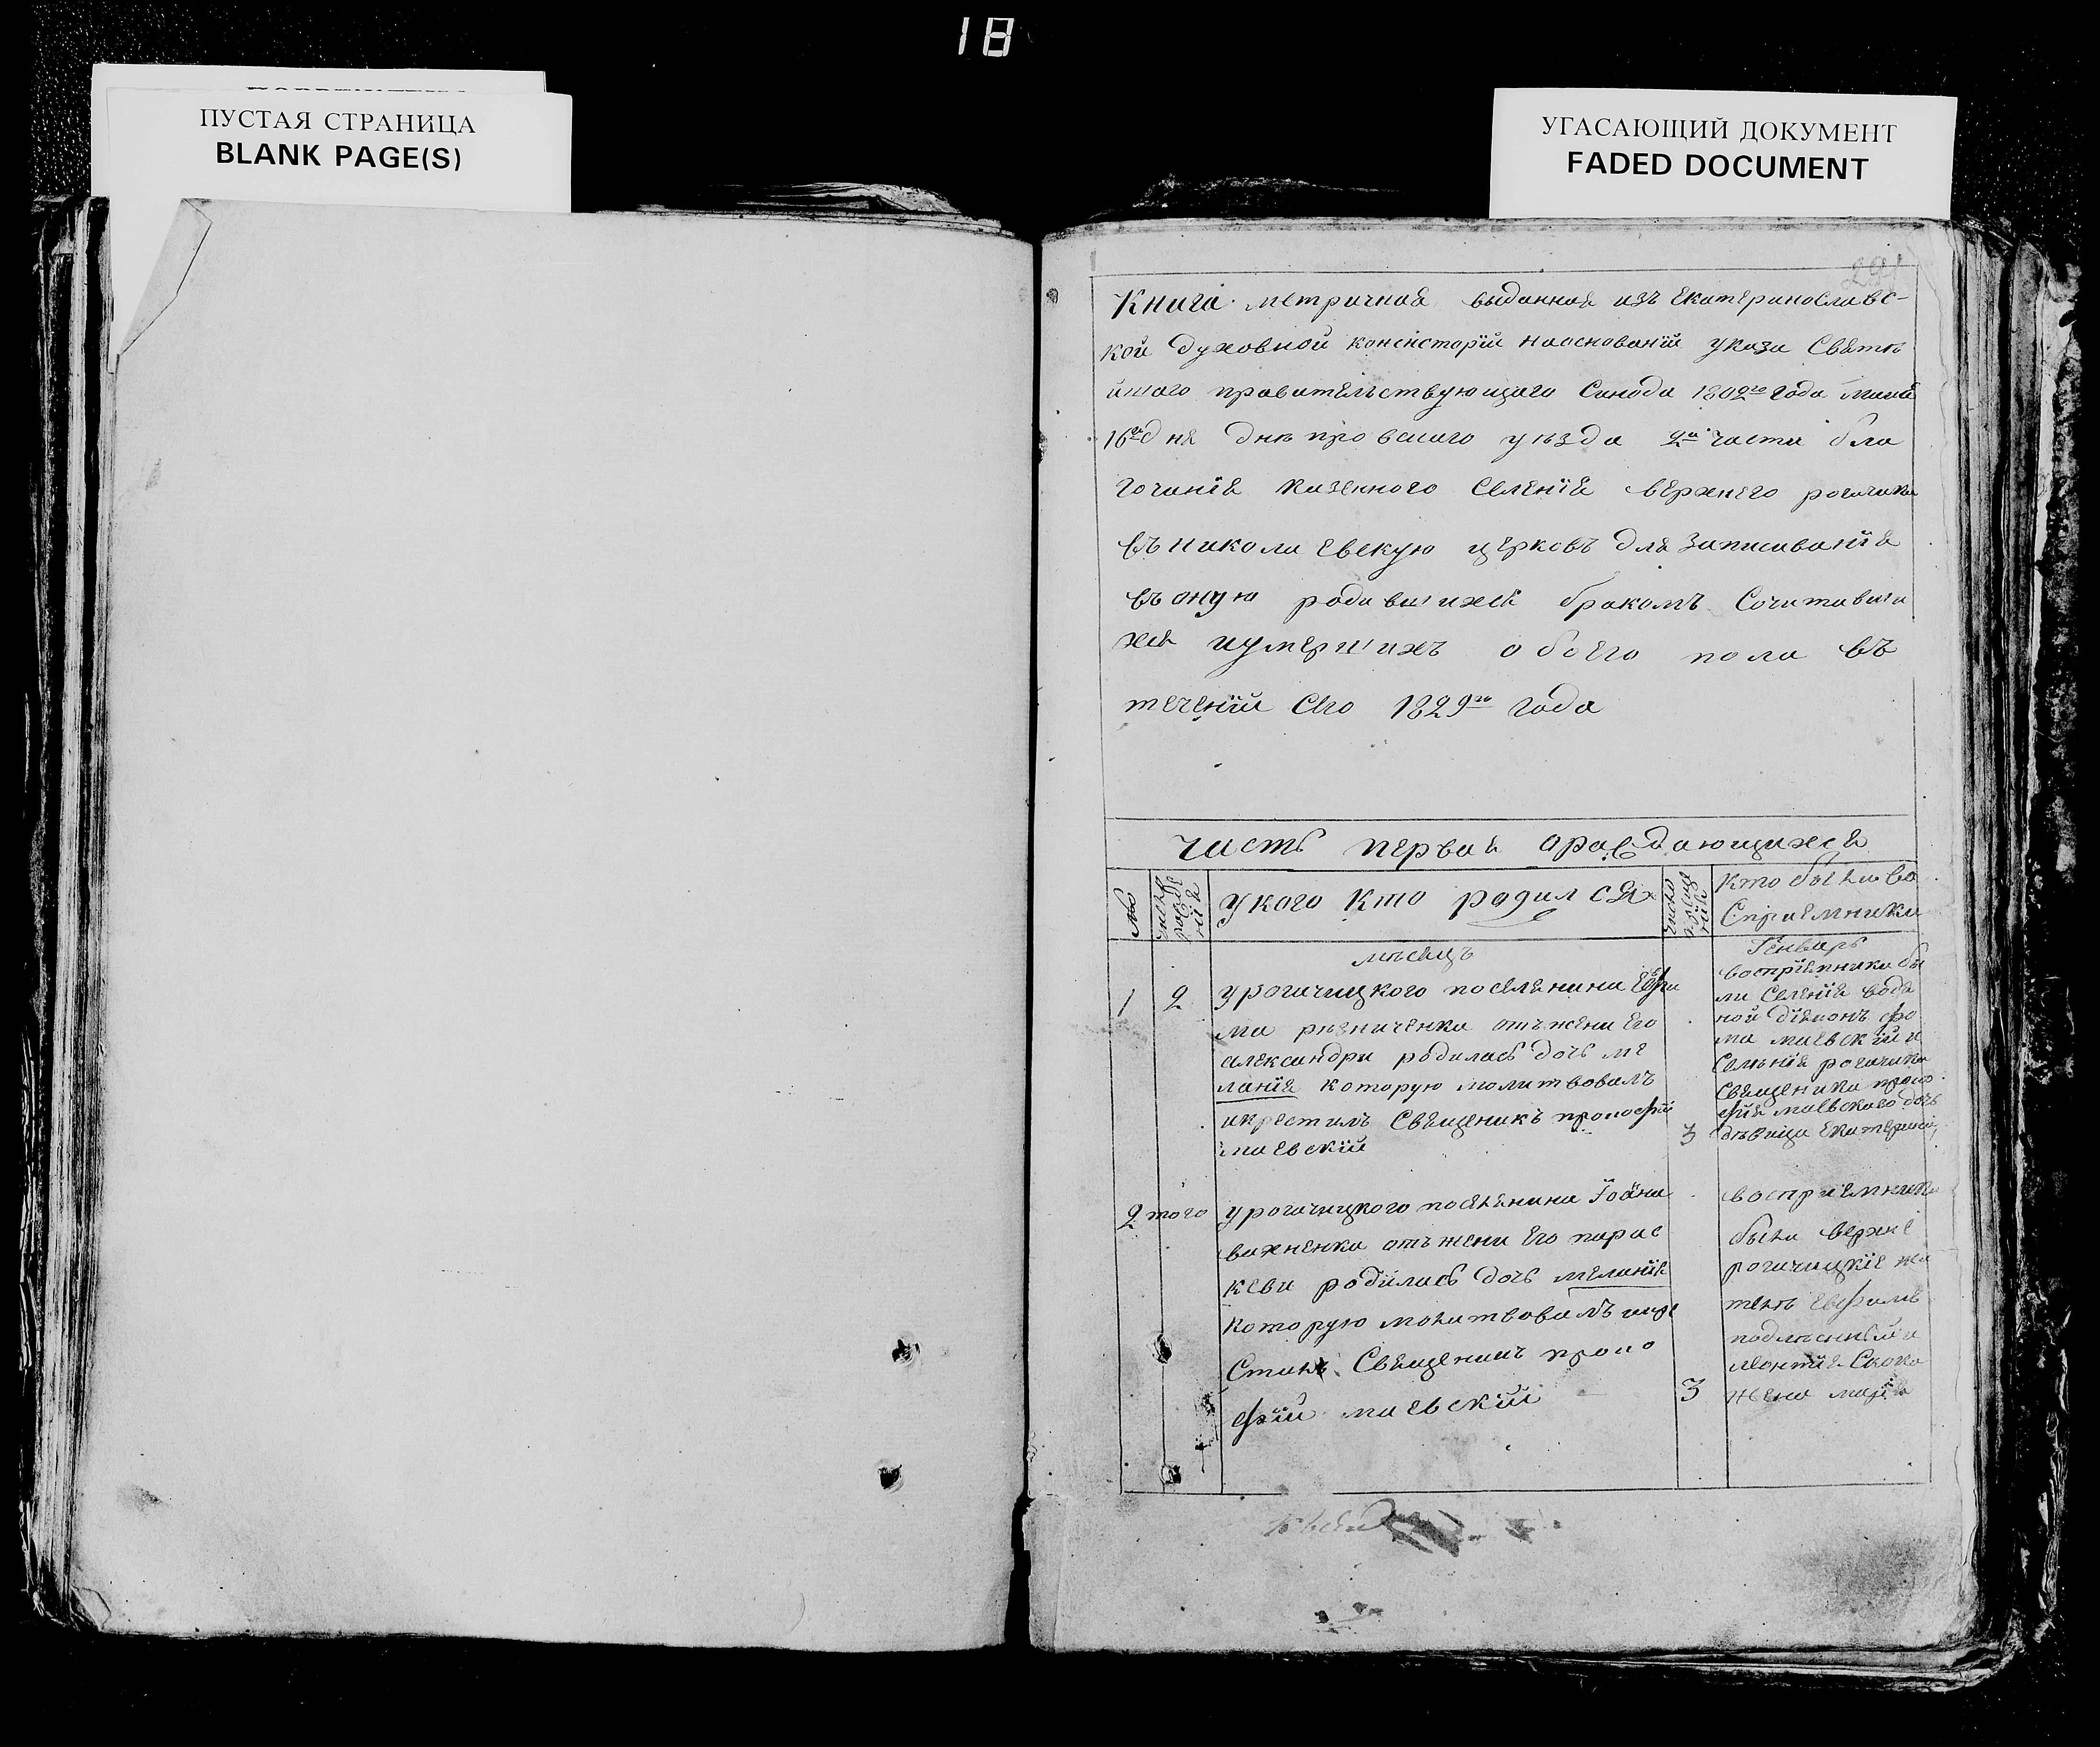 18
ПУСТАЯ СТРАНИЦА
BLANK PAGE(S)
УГАСАЮЩИЙ ДОКУМЕНТ
FADED DOCUMENT
Книга метричная выданная изъ екатеринославс-
кой духовной консисторїи наоснованїи указа Святѣ
йшаго правительствующаго Синода 1802го года маия
16го дня днѣпровскаго уѣзда 2й части бла
гочинїя казенного селенїя верхнего рогачика
въ николаевскую церковъ для записиванїя
въ оную родившихся бракомъ Сочитавши
хся иумершихъ обоего пола въ
теченїи Сего 1829го года
часть первая ораждающихся
№ число рожде нїя
укого кто родился
число креще нїя
кто были во
Сприемники
мѣсяцъ
Генваръ
1 2 урогачицкого поселянина Ефи
ма резниченка отъ жени его
александри родилась дочь ме
ланїя которую молитвовалъ
икрестилъ Священикъ прокофїй
маевскїй
3
воспрїемники бы
ли Селенїя водя
ной дїяконъ фо
ма маевскїй и
Селенїя рогачика
Священика проко
фїя маевского дочь
дѣвица екатерина
2 того урогачицкого поселянина Іоана
вахненка отъ жени Его парас
кеви родилась дочь меланїя
которую молитвовалъ икре
стилъ Священикъ проко
фїй маевскїй
3
восприемники
были верхне
рогачицкїе жи
тель Евфимъ
и
леонтїя Скока
жена марїя